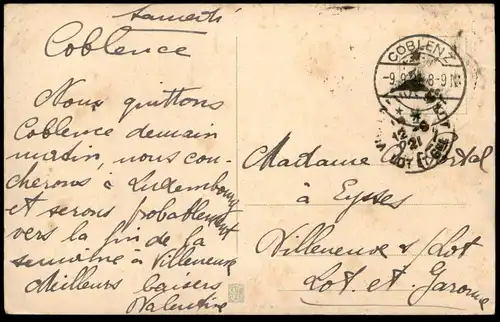 Samedi
Coblence
Nous quittons
Coblence demain
matin, nous cou-
cherons à Luxembourg
et serons probablement
vers la fin de la
semaine à Villeneuve
Meilleurs baisers
Valentine
COBLENZ
-9.9. 8-9 N
12 -9
21
LOT
Madame
à Eysses
Villeneuve s/Lot
Lot et Garonne